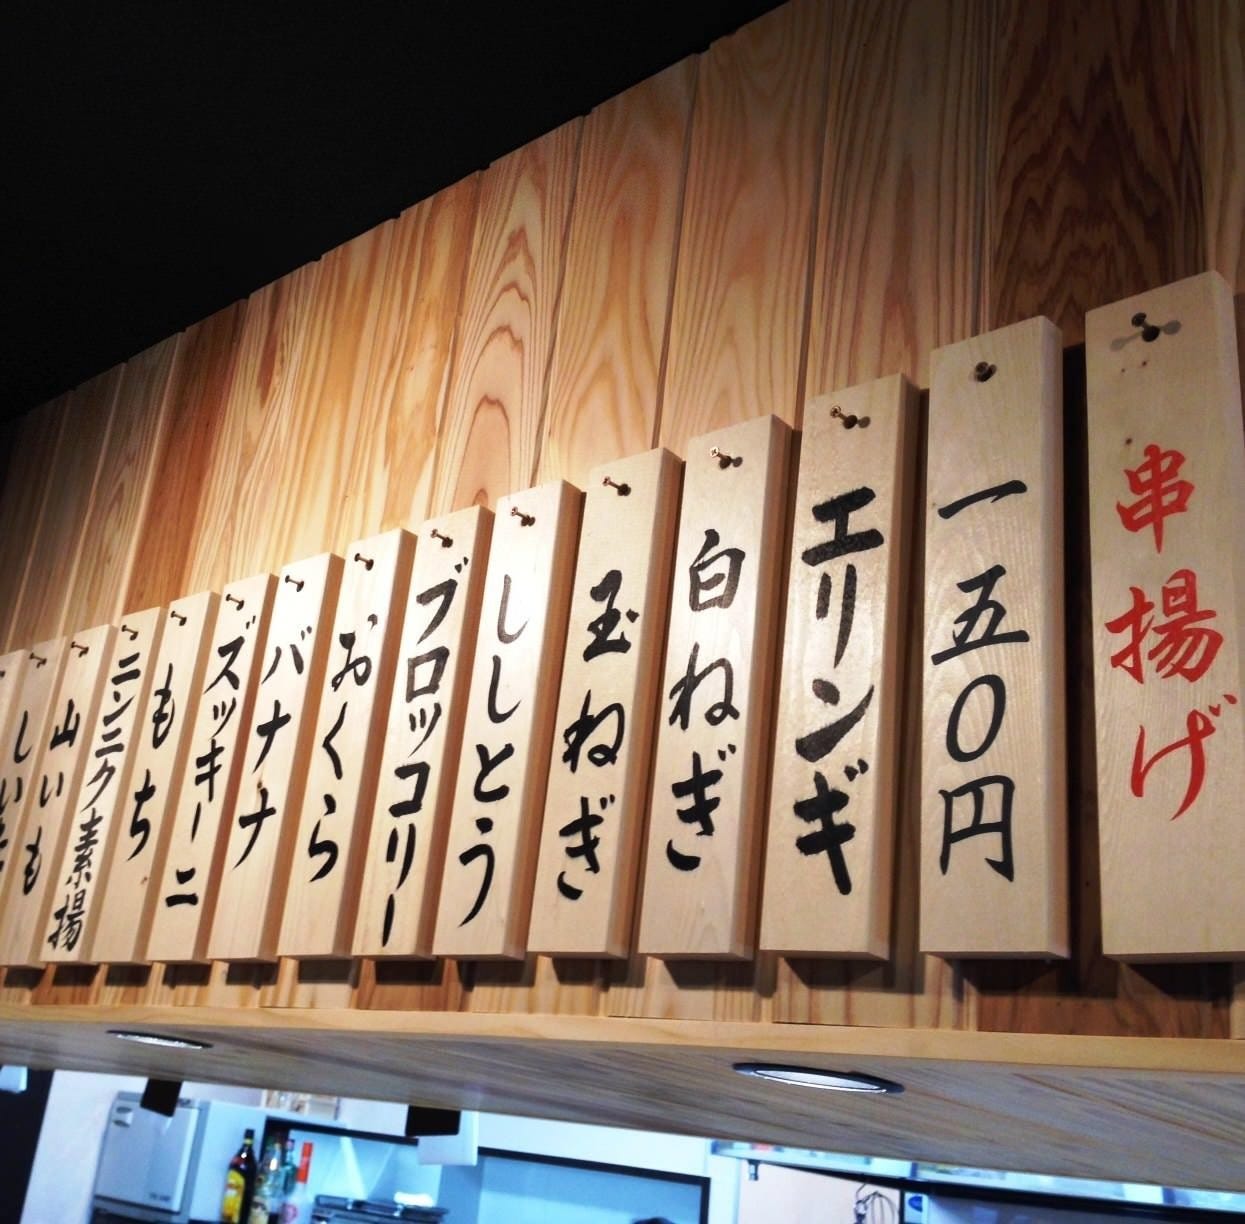 串揚げ
一五〇円
エリンギ
白ねぎ
玉ねぎ
ししとう
ブロッコリー
おくら
バナナ
ズッキーニ
もち
ニンニク素揚
山いも